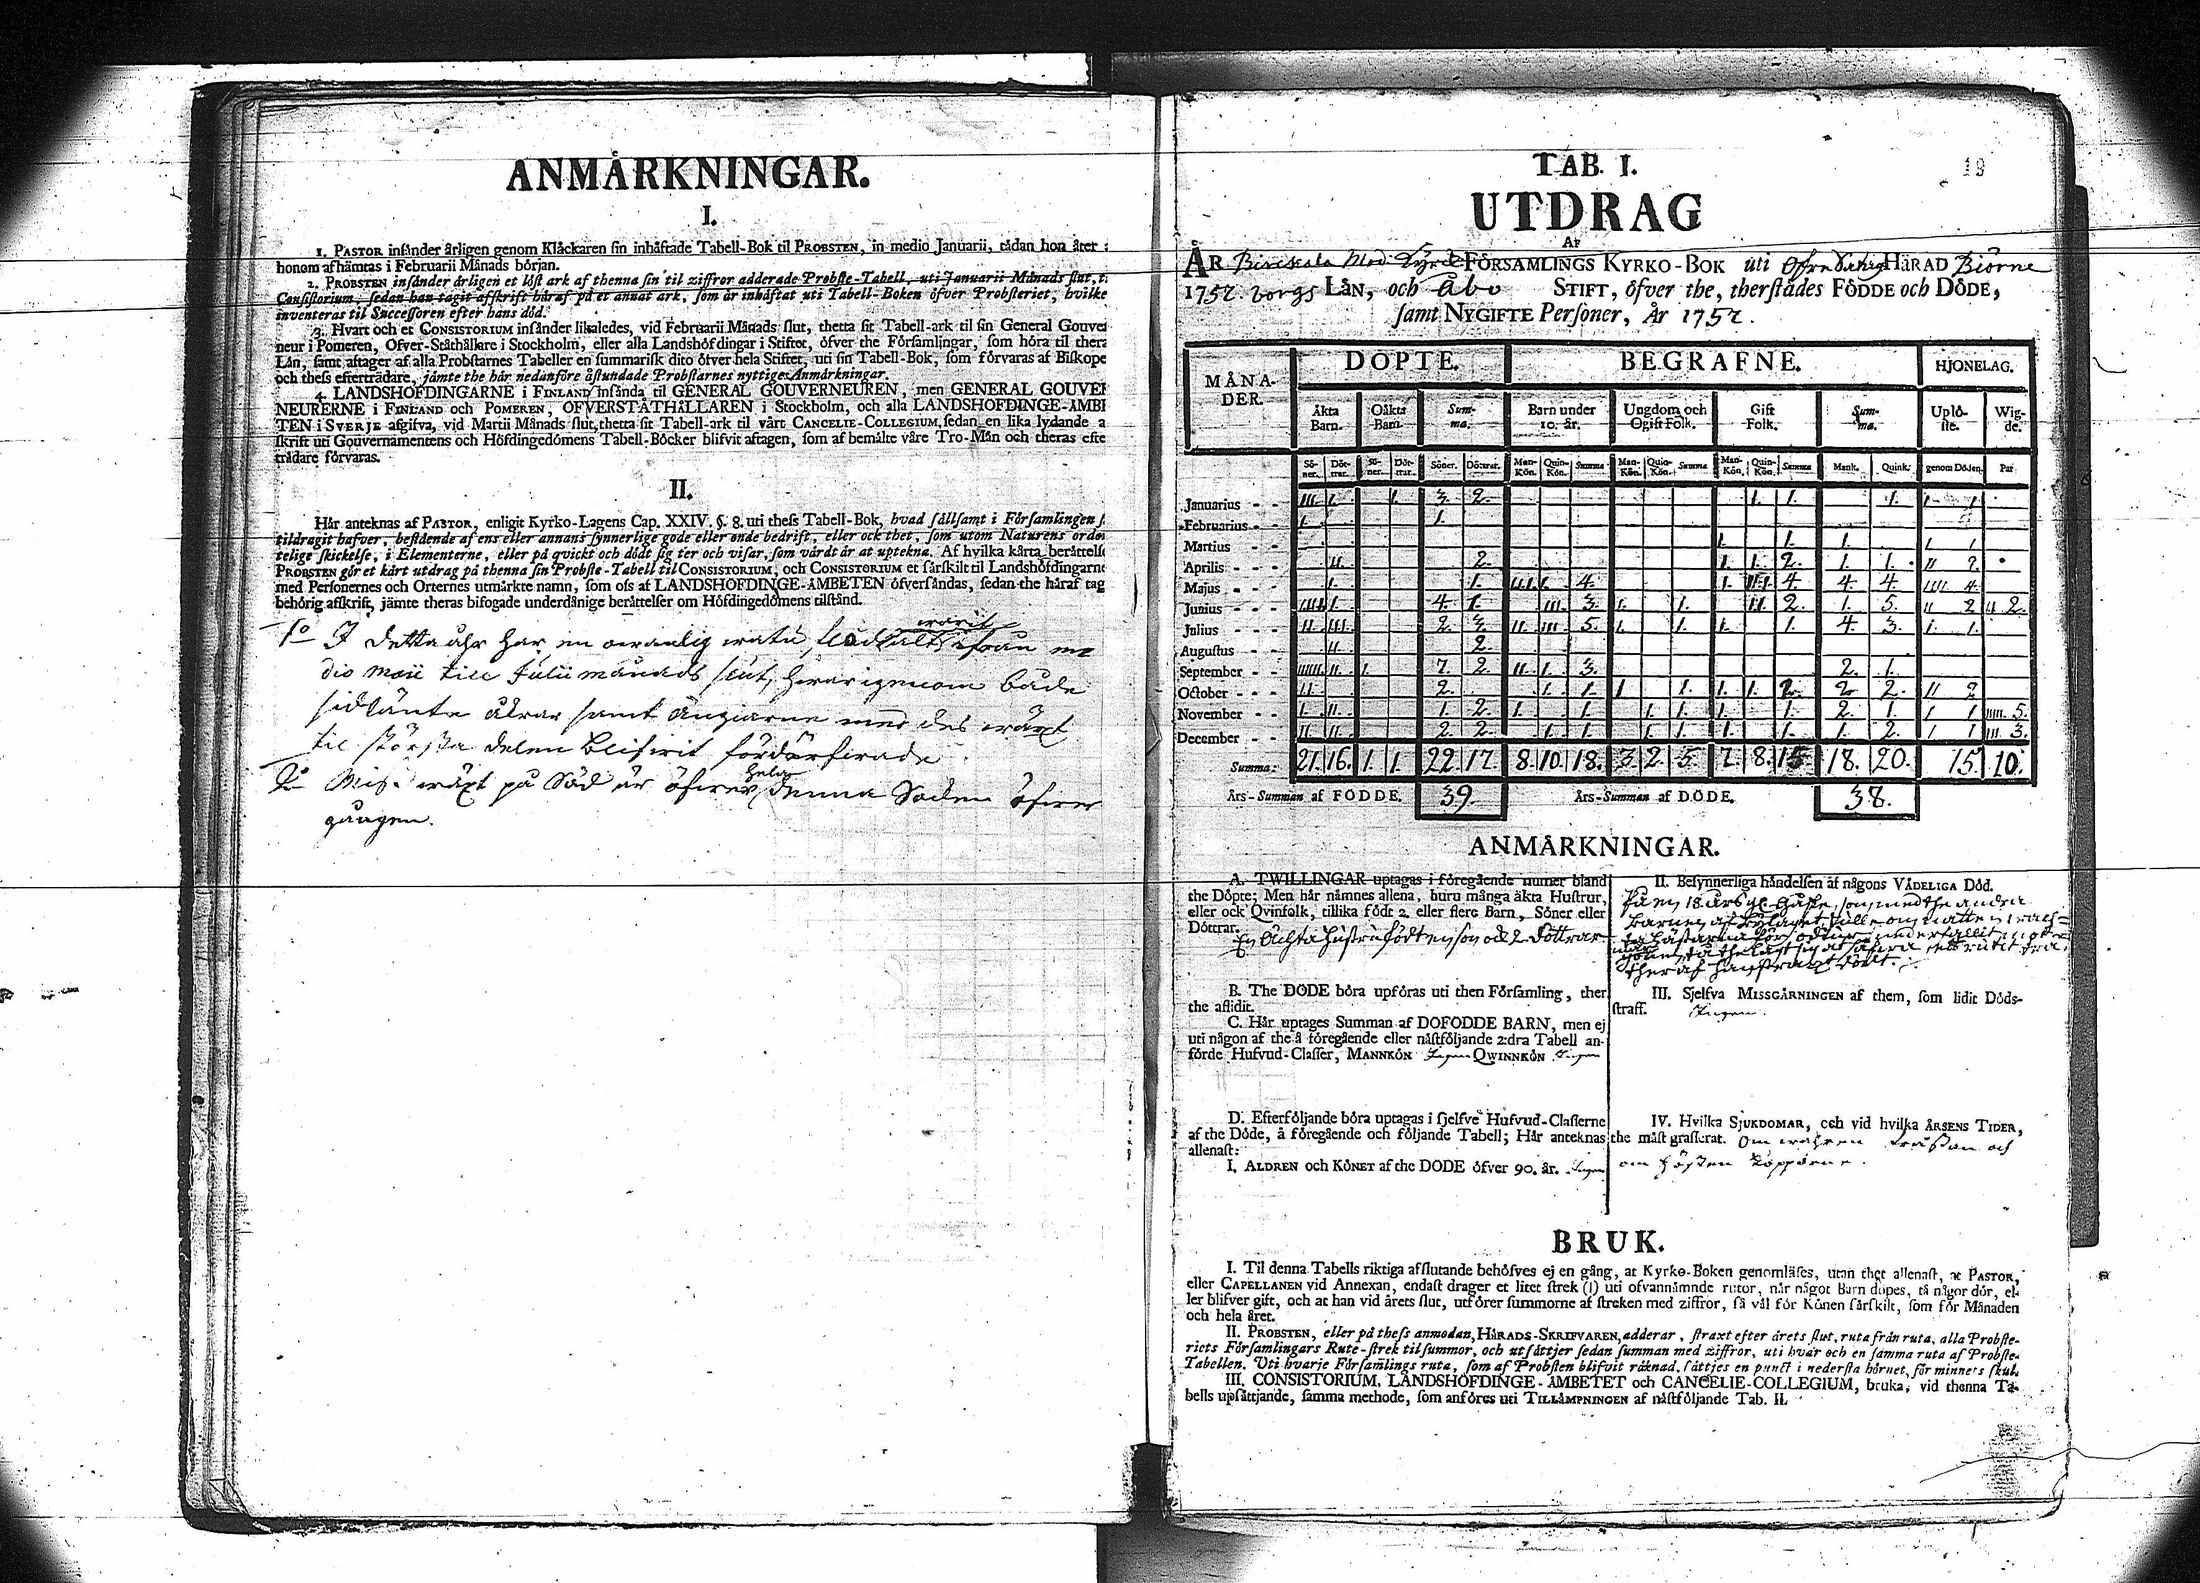 ANMÄRKNINGAR.
I.
1. PASTOR insänder årligen genom Klåckaren sin inhäftade Tabell-Bok til PROBSTEN, in medio Januarii, tådan hon åter
honom afhämtas i Februarii Månads början.
2. PROBSTEN insänder årligen et löst ark af thenna sin til ziffror adderade Probste-Tabell, uti Januarii Månads slut, t.
Consistorium, sedan han tagit afskrift häraf på et annat ark, som är inhäftat uti Tabell-Boken öfver Probsteriet, hvilke
inventeras til Successoren efter hans död.
3. Hvart och et CONSISTORIUM insänder likaledes, vid Februarii Månads slut, thetta sit Tabell-ark til sin General Gouver
neur i Pomeren, Öfver-Ståthållare i Stockholm, eller alla Landshöfdingar i Stiftet, öfver the Församlingar, som höra til thera
Län, samt aftager af alla Probstarnes Tabeller en summarisk dito öfver hela Stiftet, uti sin Tabell-Bok, som förvaras af Biskope
och thess efterträdare, jämte the här nedanföre åstundade Probstarnes nyttiges Anmärkningar.
4. LANDSHÖFDINGARNE i FINLAND insända til GENERAL GOUVERNEUREN, men GENERAL GOUVER
NEURERNE i FINLAND och POMEREN, ÖFVERSTÅTHÅLLAREN i Stockholm, och alla LANDSHÖFDINGE-ÄMBE
TEN i SVERJE afgifva, vid Martii Månads slut, thetta sit Tabell-ark til vårt CANCELIE-COLLEGIUM, sedan en lika lydande a
skrift uti Gouvernamentens och Höfdingedömens Tabell-Böcker blifvit aftagen, som af bemälte våre Tro-Män och theras efte
trädare förvaras.
II.
Här anteknas af PASTOR, enligit Kyrko-Lagens Cap. XXIV. §. 8. uti thess Tabell-Bok, hvad sällsamt i Församlingen s
tildragit hafver, bestående af ens eller annans synnerlige gode eller onde bedrift, eller ock thet, som utom Naturens orden
telige skickelse, i Elementerne, eller på qvickt och dödt sig ter och visar, som värdt är at uptekna. Af hvilka korta berättelse
PROBSTEN gör et kårt utdrag på thenna sin Probste-Tabell til CONSISTORIUM, och CONSISTORIUM et särskilt til Landshöfdingarne
med Personernes och Orternes utmärkte namn, som oss af LANDSHÖFDINGE-ÄMBETEN öfversändas, sedan the häraf tag
behörig afskrift, jämte theras bifogade underdånige berättelser om Höfdingedömens tilstånd.
warit
1o I detta åhr har en owanlig wåta ifrån me
dio Maii till Julii månads slut, hwarigenom både
sidlänte åkrar samt ängiarne med des wäxt
til största delen blifwit fördärfwade
hela
2o Mis-wäxt på Säd är öfwer denna Socken öfwer
gången.
TAB. I.
19
UTDRAG
AF
ÅR Birckala Mod. Kyrck FÖRSAMLINGS KYRKO-BOK uti Öfre Satag HÄRAD Biörne
1752. borgs LÄN, och Åbo STIFT, öfver the, therstädes FÖDDE och DÖDE,
samt NYGIFTE Personer, År 1752.
MÅNA-DER. DÖPTE. BEGRAFNE. HJONELAG.
Äkta Barn. Oäkta Barn. Sum-ma. Barn under 10. år. Ungdom och Ogift Folk. Gift Folk. Sum-ma. Uplö-ste. Wig-de.
Sö-ner. Döt-trar. Sö-ner. Döt-trar. Söner. Döttrar. Man-Kön. Quin-Kön. Summa Man-Kön. Quin-Kön. Summa Man-Kön. Quin-Kön. Summa Mank. Quink. genom Döden. Par
Januarius - - III. I. 1. 3. 2. 1. 1. 1. 1 1
Februarius - - 1. 1.
Martius - - 1. 1. 1. 1 1
Aprilis - - II. 2. 1. 1. 2. 1. 1. II 2.
Majus - - 1. 1. IIII. 4. 1. III. 4. 4. 4. IIII 4.
Junius - - IIII. 1. 4. 1. III. 3. 1. 1. II. 2. 1. 5. II 2 II 2.
Julius - - II. III. 2. 3. II. III. 5. 1. 1. 1. 1. 4. 3. 1. 1.
Augustus - - II. 2.
September - - IIIIIII. II. 1. 7. 2. II. 1. 3. 2. 1.
October - - II. 2. 1. 1. 1 1. 1. 1. 2. 2. 2. II 2
November - - 1. II. 1. 2. 1. 1. 1. 1. 1. 1. 2. 1. 1 1 IIIII. 5.
December - - II. II. 2. 2. 1. 1. 1. 1. 1. 1. 1. 2. 1 1 III 3.
Summa: 21. 16. 1. 1. 22. 17. 8. 10. 18. 3. 2. 5. 7. 8. 15 18. 20. 15. 10.
Års-Summan af FÖDDE. 39. Års-Summan af DÖDE. 38.
ANMÄRKNINGAR.
A. TWILLINGAR uptagas i föregående numer bland
the Döpte; Men här nämnes allena, huru många äkta Hustrur,
eller ock Qvinfolk, tillika födt 2. eller flere Barn, Söner eller
Döttrar.
En Ächta hustru födt en son och 2 döttrar
B. The DÖDE böra upföras uti then Församling, ther
the aflidit.
C. Här uptages Summan af DÖFÖDDE BARN, men ej
uti någon af the å föregående eller nästföljande 2:dra Tabell an-
förde Hufvud-Classer, MANNKÖN Ingen QWINNKÖN Ingen
D. Efterföljande böra uptagas i sjelfve Hufvud-Classerne
af the Döde, å föregående och följande Tabell; Här anteknas
allenast:
I. ÅLDREN och KÖNET af the DÖDE öfver 90. år. Ingen
II. Besynnerliga händelsen af någons VÅDELIGA Död.
III. Sjelfva MISSGÄRNINGEN af them, som lidit Döds-
straff. Ingen.
IV. Hvilka SJUKDOMAR, och vid hvilka ÅRSENS TIDER,
the måst grasserat. Om wåhren och
om hösten kopporne.
BRUK.
I. Til denna Tabells riktiga afslutande behöfves ej en gång, at Kyrko-Boken genomläses, utan thet allenast, at PASTOR,
eller CAPELLANEN vid Annexan, endast drager et litet strek (I) uti ofvannämnde rutor, när något Barn döpes, tå någor dör, el-
ler blifver gift, och at han vid årets slut, utförer summorne af streken med ziffror, så väl för Könen särskilt, som för Månaden
och hela året.
II. PROBSTEN, eller på thess anmodan, HÄRADS-SKRIFVAREN, adderar, straxt efter årets slut, ruta från ruta, alla Probste-
riets Församlingars Rute-strek til summor, och utsättjer sedan summan med ziffror, uti hvar och en samma ruta af Probste-
Tabellen. Uti hvarje Församlings ruta, som af Probsten blifvit räknad, sättjes en punct i nedersta hörnet, för minnets skul.
III. CONSISTORIUM, LANDSHÖFDINGE-ÄMBETET och CANCELIE-COLLEGIUM, bruka, vid thenna Ta-
bells upsättjande, samma methode, som anföres uti TILLÄMPNINGEN af nästföljande Tab. II.